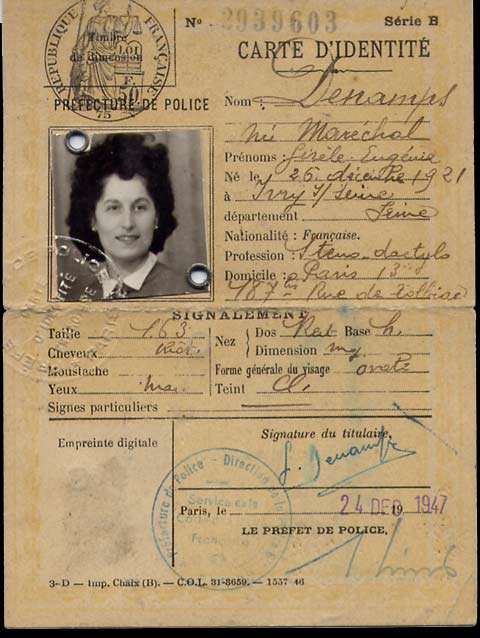 RÉPUBLIQUE FRANÇAISE
Timbre
de dimension
LOI
F.
50
75
PRÉFECTURE DE POLICE
N° 3939603 Série B
CARTE D'IDENTITÉ
Nom : Denamps
née Maréchal
Prénoms : Gisèle Eugénie
Né le 26 décembre 1921
à Ivry s/ Seine
département Seine
Nationalité : Française.
Profession : Steno-dactylo
Domicile : à Paris 13
187 Rue de Tolbiac
SIGNALEMENT
Taille 1.63
Cheveux
Moustache
Yeux
Signes particuliers
Nez Dos Rect Base h.
Dimension my
Forme générale du visage ovale
Teint cl.
Empreinte digitale
Signature du titulaire,
G. Denamps
Préfecture de Police - Direction
Paris, le 24 DEC 1947
LE PRÉFET DE POLICE,
3-D — Imp. Chaix (B). — C.O.L. 31-3659. — 1557-46